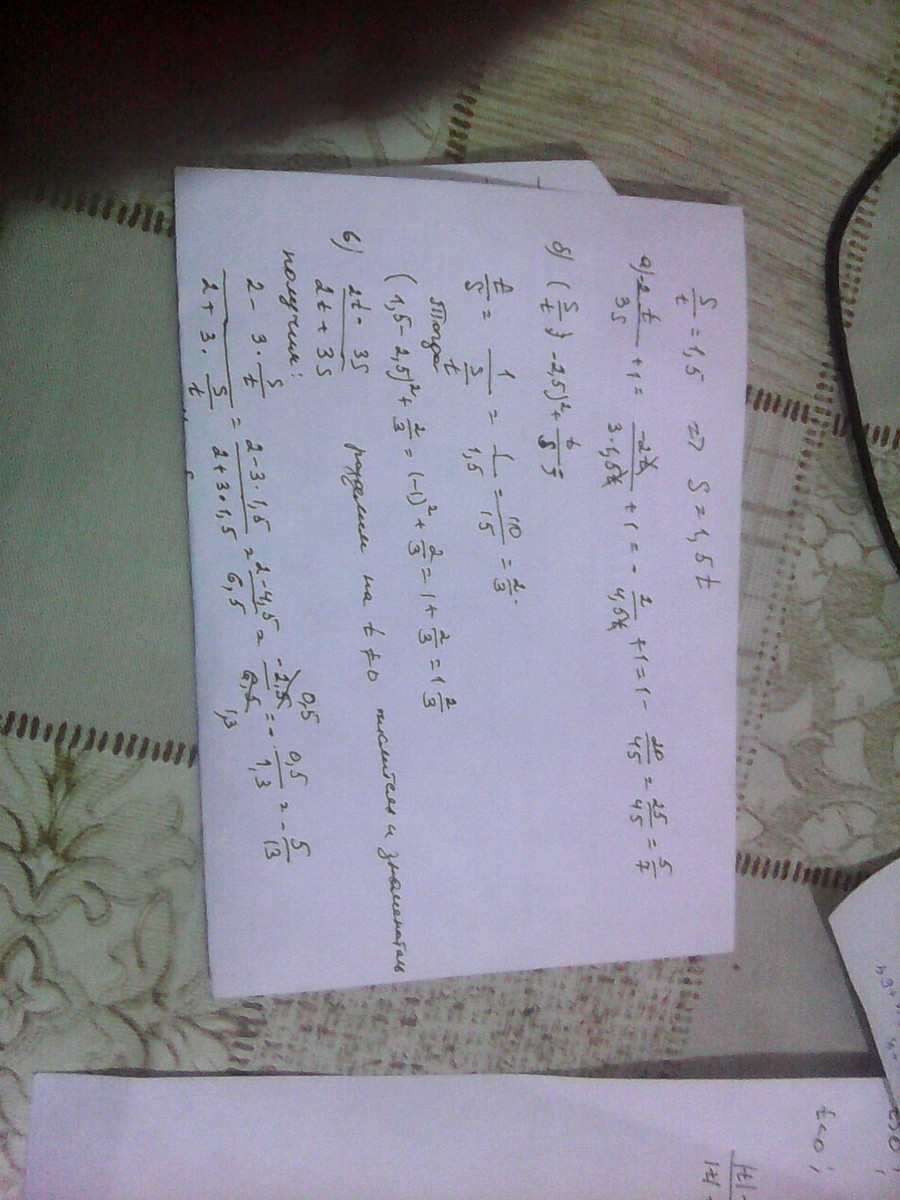 s/t = 1,5 => S = 1,5t
а) -2t/3s + 1 = -2t/3·1,5t + 1 = - 2/4,5t + 1 = 1 - 20/45 = 25/45 = 5/7
б) (s/t) - 2,5)² + t/s =
t/s = 1/(s/t) = 1/1,5 = 10/15 = 2/3.
Тогда
(1,5 - 2,5)² + 2/3 = (-1)² + 2/3 = 1 + 2/3 = 1 2/3
в) 2t - 3s/2t + 3s разделим на t ≠ 0 числитель и знаменатель
получим:
2 - 3·s/t / 2 + 3·s/t = 2-3·1,5/2+3·1,5 = 2-4,5/6,5 = -2,5/6,5 = - 0,5/1,3 = - 5/13
0,5
1,3
t<0;